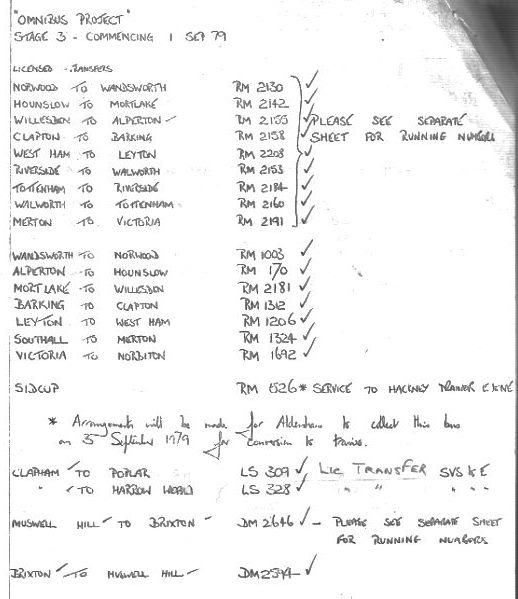 "OMNIBUS PROJECT"
STAGE 3 - COMMENCING 1 SEP 79
LICENSED TRANSFERS
NORWOOD TO WANDSWORTH RM 2130 ✓
HOUNSLOW TO MORTLAKE RM 2142 ✓
WILLESDEN TO ALPERTON RM 2155 ✓ PLEASE SEE SEPARATE
CLAPTON TO BARKING RM 2158 ✓ SHEET FOR RUNNING NUMBERS
WEST HAM TO LEYTON RM 2208 ✓
RIVERSIDE TO WALWORTH RM 2153 ✓
TOTTENHAM TO RIVERSIDE RM 2184 ✓
WALWORTH TO TOTTENHAM RM 2160 ✓
MERTON TO VICTORIA RM 2191 ✓
WANDSWORTH TO NORWOOD RM 1003 ✓
ALPERTON TO HOUNSLOW RM 170 ✓
MORTLAKE TO WILLESDEN RM 2181 ✓
BARKING TO CLAPTON RM 1312 ✓
LEYTON TO WEST HAM RM 1206 ✓
SOUTHALL TO MERTON RM 1324 ✓
VICTORIA TO NORBITON RM 1692 ✓
SIDCUP RM 526 * SERVICE TO HACKNEY TRAINER
* Arrangements will be made for Aldenham to collect this bus
on 3rd September 1979 for conversion to trainer.
CLAPHAM TO POPLAR LS 309 ✓ LIC TRANSFER
" TO HARROW WEALD LS 328 ✓ " "
MUSWELL HILL TO BRIXTON DM 2646 ✓ - PLEASE SEE SEPARATE SHEET
FOR RUNNING NUMBERS
BRIXTON TO MUSWELL HILL DM 2594 ✓